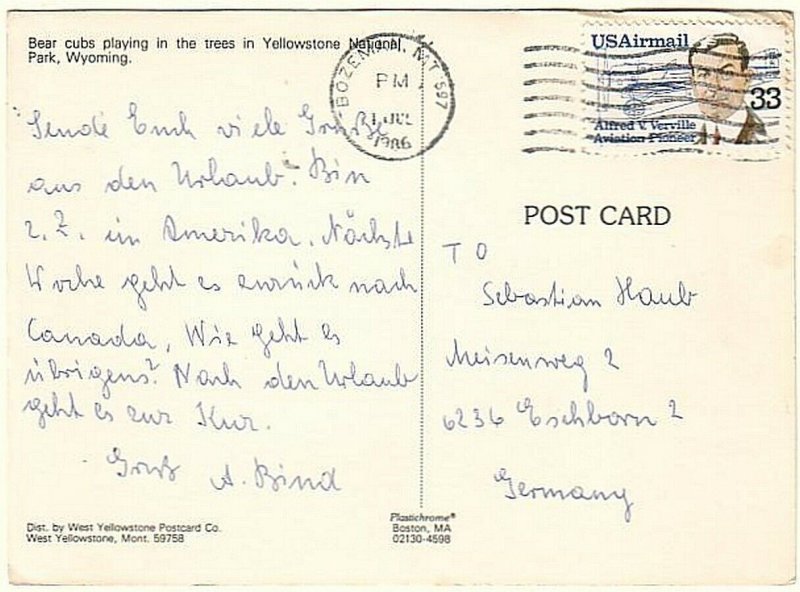 Bear cubs playing in the trees in Yellowstone National
Park, Wyoming.
Sende Euch viele Grüße
aus den Urlaub. Bin
z. Z. in Amerika. Nächste
Woche geht es zurück nach
Canada, Wie geht es
übrigens? Nach den Urlaub
geht es zur Kur.
Gruß A. Bind
Dist. by West Yellowstone Postcard Co.
West Yellowstone, Mont. 59758
Plastichrome®
Boston, MA
02130-4598
BOZEMAN, MT 597
PM
1 JUL
1986
USAirmail
33
Alfred V. Verville
Aviation Pioneer
POST CARD
TO
Sebastian Haub
Meisenweg 2
6236 Eschborn 2
Germany